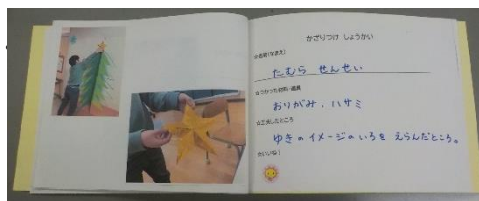 かざりつけ しょうかい
☆名前(なまえ)
たむら せんせい
☆つかった材料・道具
おりがみ、ハサミ
☆工夫したところ
ゆきのイメージのいろを えらんだところ。
☆いいね!